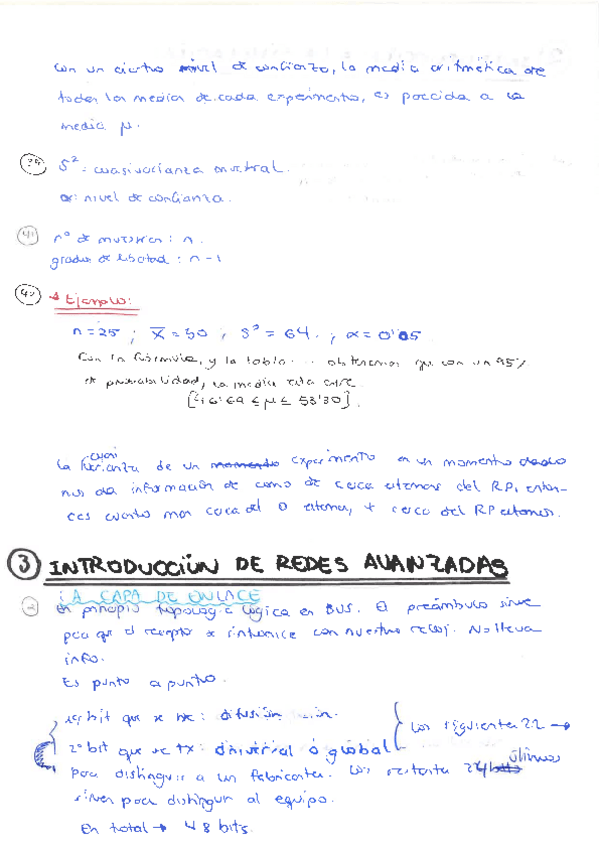 Con un cierto nivel de confianza, la media aritmética de
todas las medias de cada experimento, es parecida a la
media μ.
39 S² = cuasivarianza muestral.
α: nivel de confianza.
41 nº de muestras: n.
grados de libertad: n-1
42 → Ejemplo:
n=25 ; X̅=50 ; S²=64. ; α=0'05
Con la fórmula, y la tabla ... obtenemos que con un 95%
de probabilidad, la media está entre
[46'69 ≤ μ ≤ 53'30].
cuasi
La varianza de un momento experimento en un momento dado
nos da información de como de cerca estamos del RP, enton-
ces cuanto mas cerca del 0 estemos, + cerca del RP estamos.
3 INTRODUCCIÓN DE REDES AVANZADAS
LA CAPA DE ENLACE
2 En principio topología lógica en BUS. El preámbulo sirve
para que el receptor se sintonice con nuestro reloj. No lleva
info.
Es punto a punto.
1er bit que se tx: difusión
2º bit que se tx: universal o global
Los siguientes 22 →
para distinguir a un fabricante. Los restantes 24 bits últimos
sirven para distinguir al equipo.
En total → 48 bits.